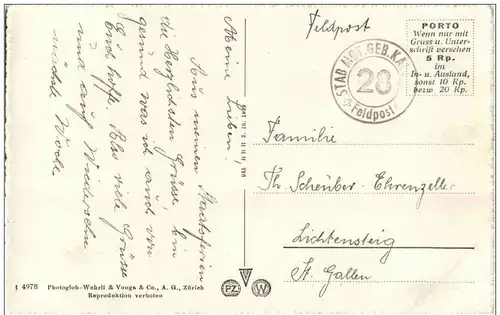 Meine Lieben!
Aus meinen Staatsferien
die herzlichsten Grüsse, bin
gesund was ich auch von
Euch hoffe. Also viele Grüsse
und auf Wiedersehn
nächste Woche
Feldpost
STAB MOT. GEB. KA
28
Feldpost
PORTO
Wenn nur mit
Gruss u. Unter-
schrift versehen
5 Rp.
im
In- u. Ausland,
sonst 10 Rp.
bezw. 20 Rp.
Familie
Th. Scheuber-Ehrenzeller
Lichtensteig
St. Gallen
4978 Photoglob-Wehrli & Vouga & Co., A. G., Zürich
Reproduktion verboten
PZ W